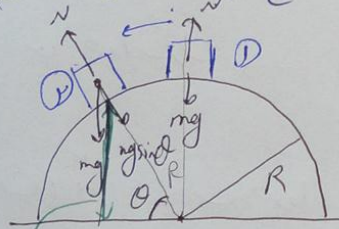 N
N
①
mg
mg
mgsinθ
R
θ
R